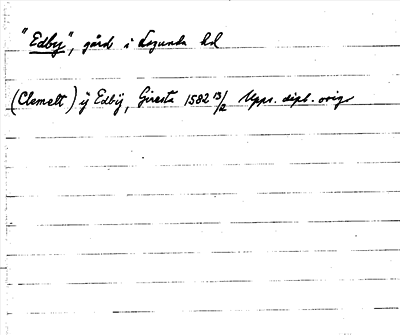 "Edby", gård i Lagunda hd
(Clemett) ÿ Edbÿ, Giresta 1582 13/2 Upps. dipl. orig.